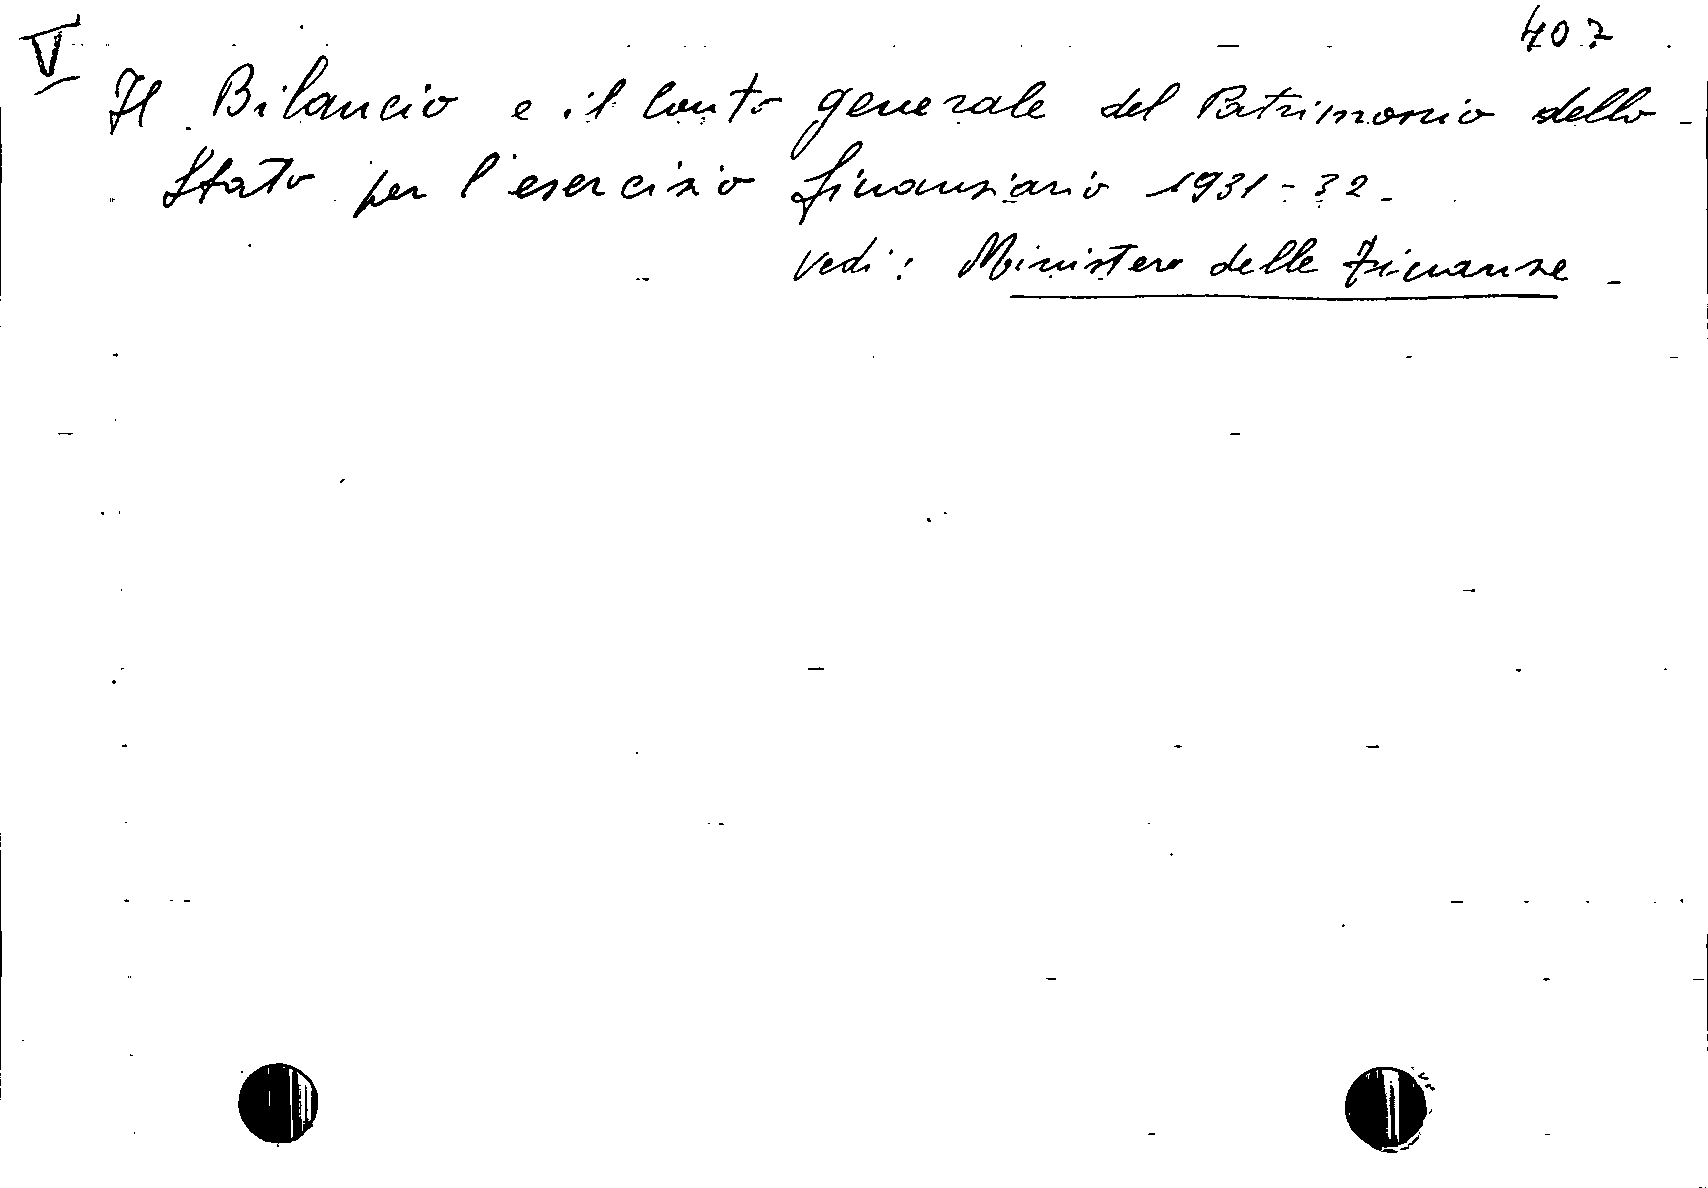 V
407
Il Bilancio e il Conto generale del Patrimonio dello
Stato per l'esercizio finanziario 1931-32.
vedi: Ministero delle Finanze